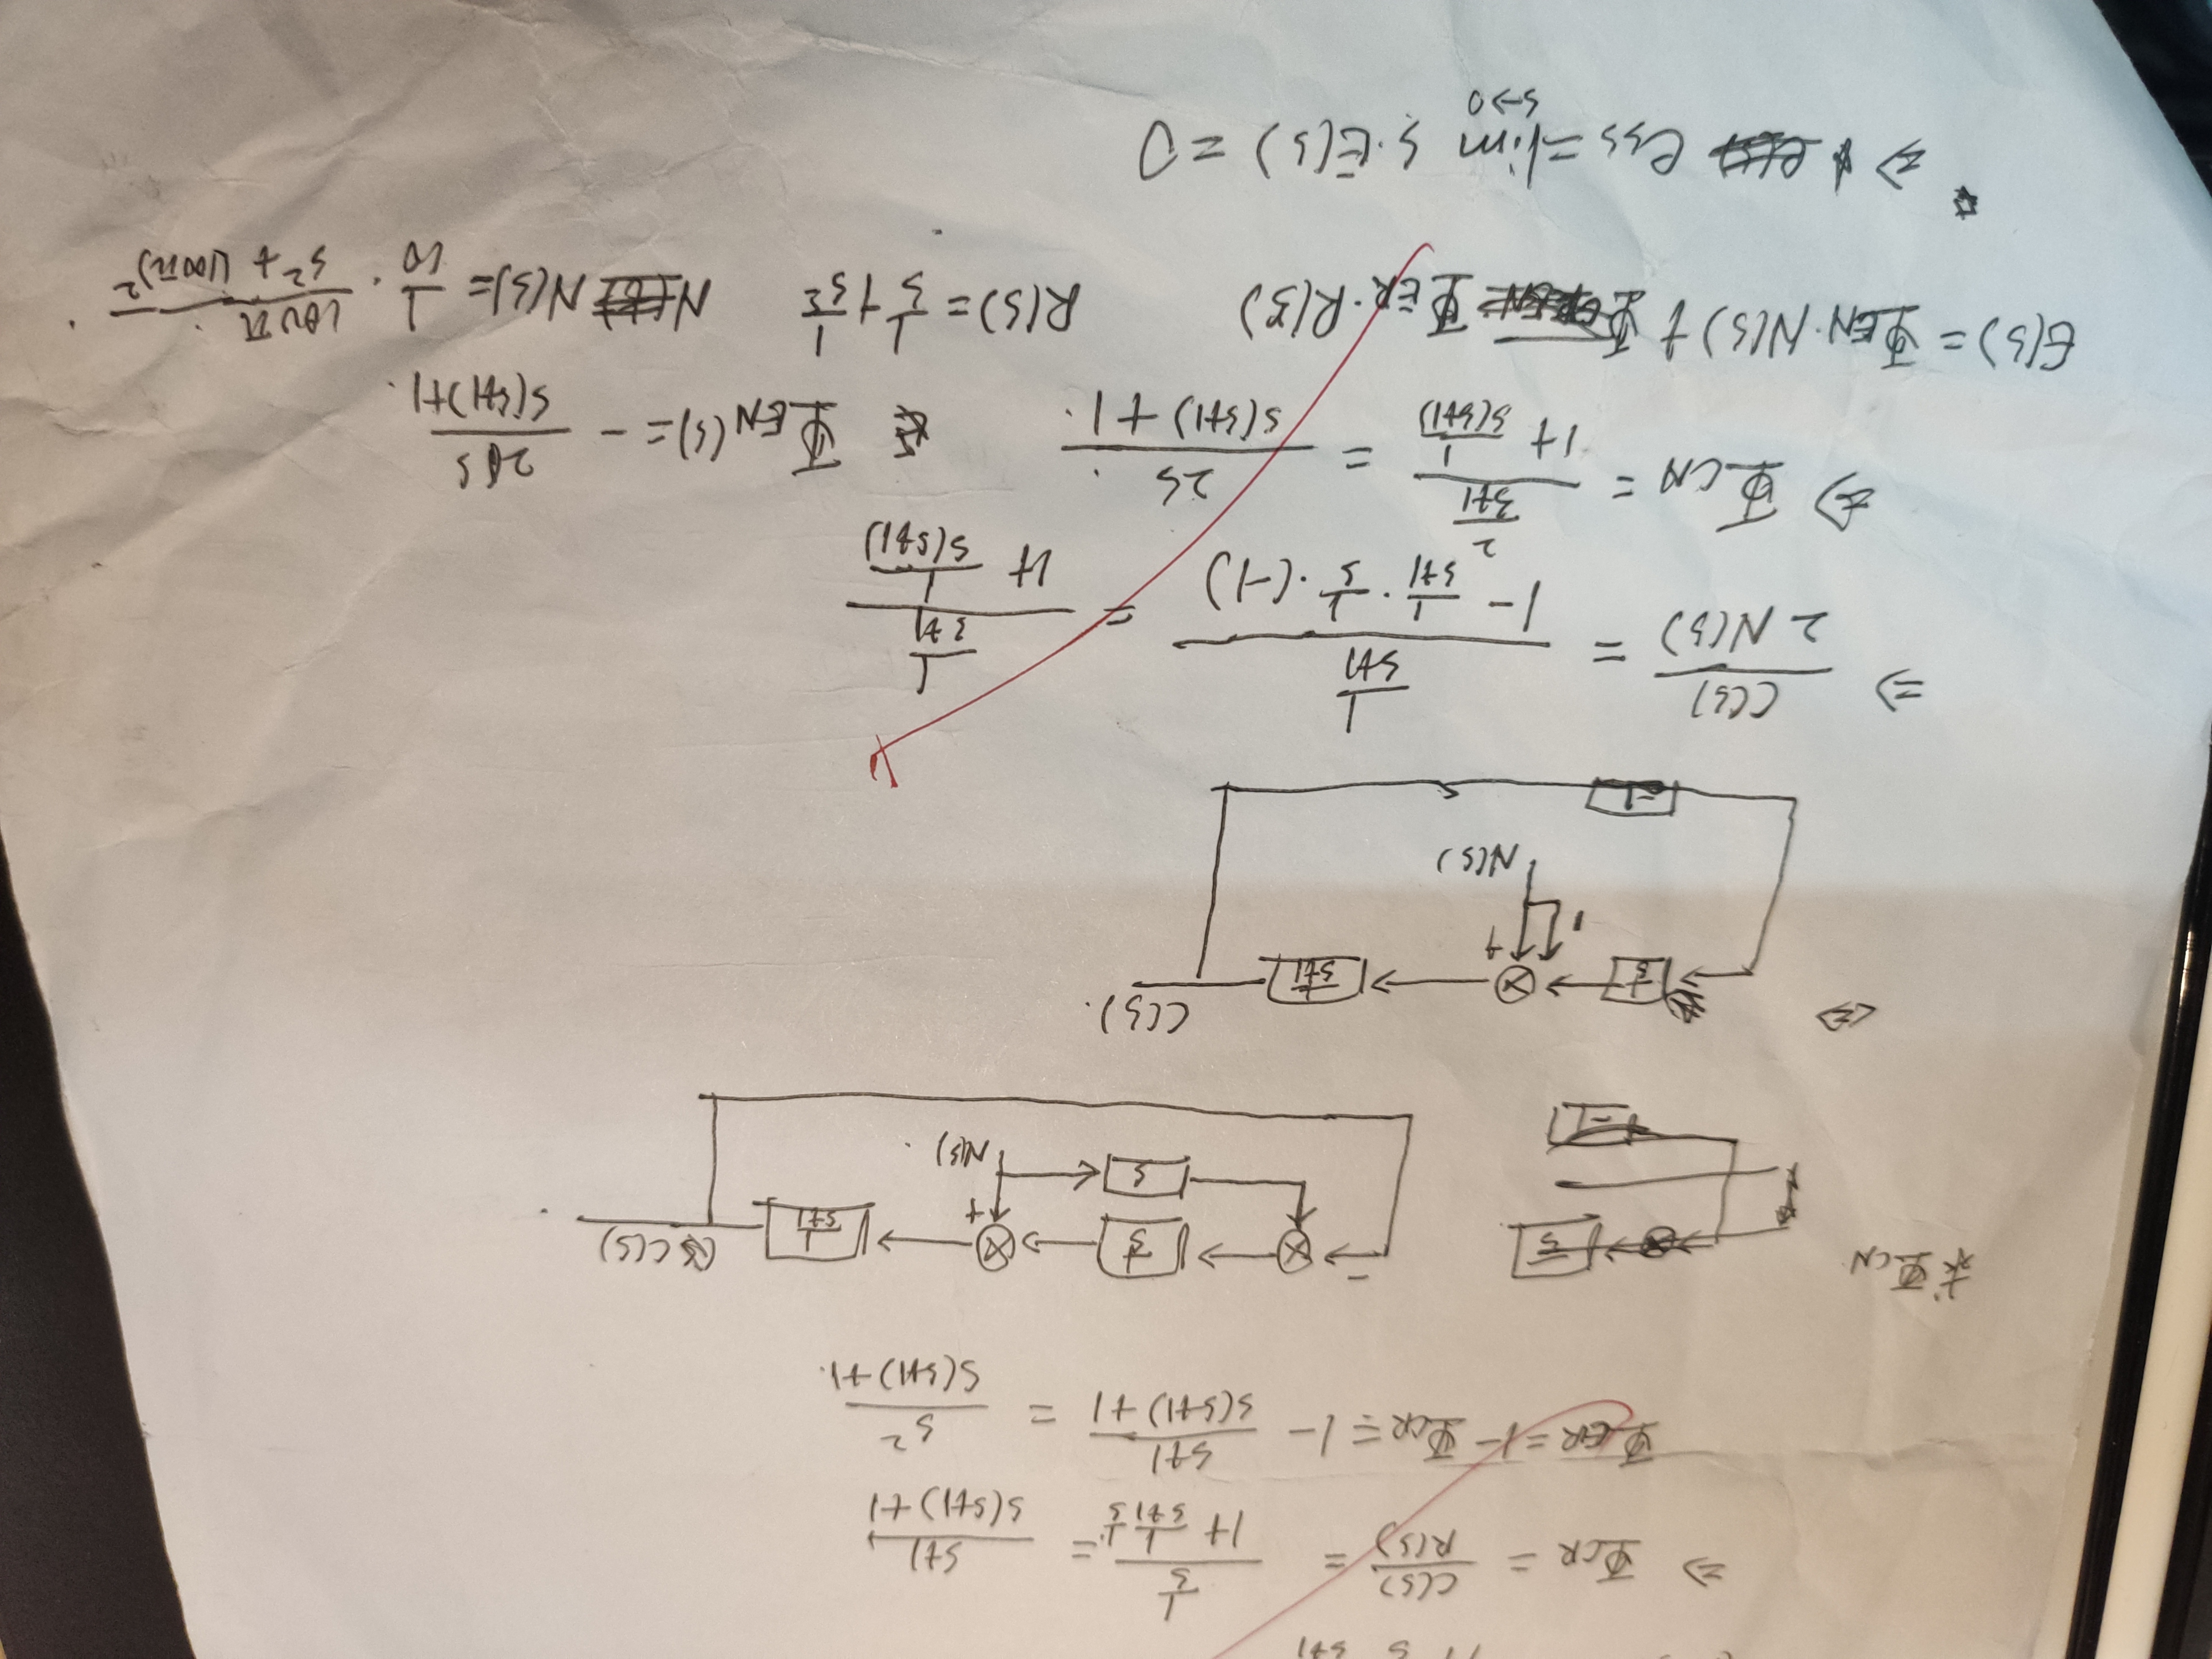 S S+1
⇒ Φ_CR = C(S)/R(S) = (1/S)/(1+ 1/(S+1) 1/S) = (S+1)/(S(S+1)+1)
Φ_ER = 1 - Φ_CR = 1 - (S+1)/(S(S+1)+1) = S²/(S(S+1)+1).
求Φ_CN
1/S
-1
-
1/S
+
1/(S+1)
C(S)
S
N(S).
⇔
1/S
+
1/(S+1)
C(S).
1
N(S)
-1
⇒ C(S)/(2N(S)) = (1/(S+1))/(1 - 1/(S+1) · 1/S · (-1)) = (1/(S+1))/(1+ 1/(S(S+1)))
⇒ Φ_CN = (2/(S+1))/(1+ 1/(S(S+1))) = 2S/(S(S+1)+1). Φ_EN(S) = - 2S/(S(S+1)+1).
E(S) = Φ_EN·N(S) + Φ_ER·R(S) R(S) = 1/S + 1/S² N(S) = 1/10 · 100π/(S²+(100π)²).
⇒ e_ss = lim_{S→0} S·E(S) = 0